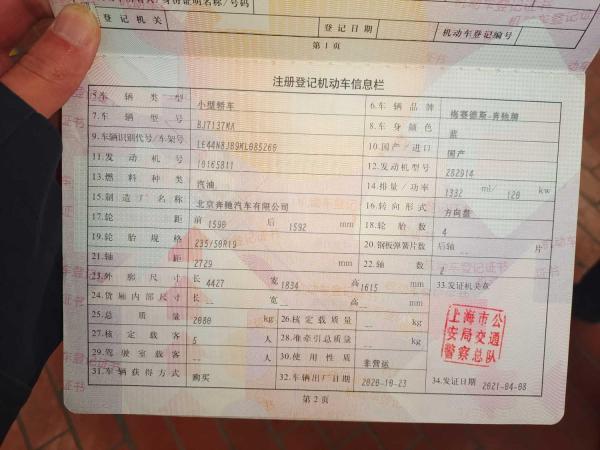 登记机关
登记日期
机动车登记编号
第1页
注册登记机动车信息栏
5.车辆类型 小型轿车 6.车辆品牌 梅赛德斯-奔驰牌
7.车辆型号 BJ7137MA 8.车身颜色 蓝
9.车辆识别代号/车架号 LE44N8JB9ML085260 10.国产/进口 国产
11.发动机号 10165811 12.发动机型号 282914
13.燃料种类 汽油 14.排量/功率 1332 ml/ 120 kw
15.制造厂名称 北京奔驰汽车有限公司 16.转向形式 方向盘
17.轮距 前 1590 后 1592 mm 18.轮胎数 4
19.轮胎规格 235/50R19 20.钢板弹簧片数 后轴 -- 片
21.轴距 2729 mm 22.轴数 2
23.外廓尺寸 长 4427 宽 1834 高 1615 mm 33.发证机关章
24.货厢内部尺寸 长 -- 宽 -- 高 -- mm
25.总质量 2080 kg 26.核定载质量 -- kg
27.核定载客 5 人 28.准牵引总质量 -- kg
29.驾驶室载客 -- 人 30.使用性质 非营运
31.车辆获得方式 购买 32.车辆出厂日期 2020-10-23 34.发证日期 2021-04-08
上海市公
安局交通
警察总队
第2页